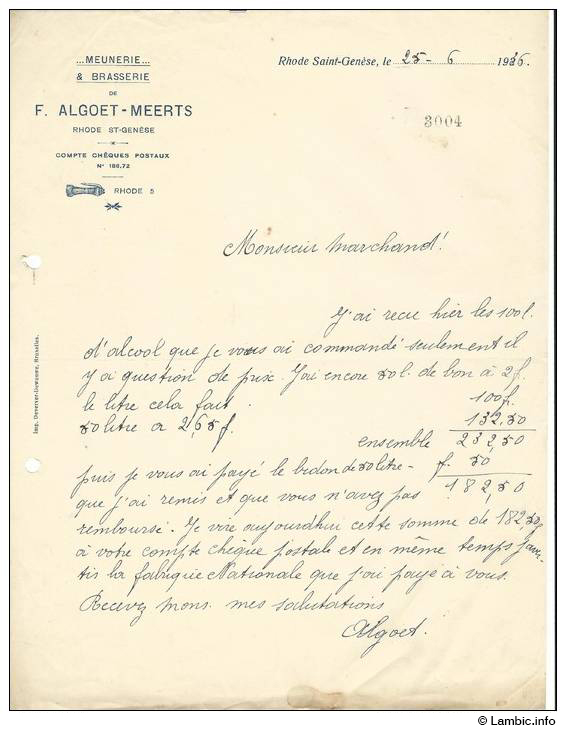 ...MEUNERIE...
& BRASSERIE
DE
F. ALGOET-MEERTS
RHODE ST-GENÈSE
COMPTE CHÈQUES POSTAUX
N° 186,72
RHODE 5
Rhode Saint-Genèse, le 25 - 6 1926.
3004
Monsieur Marchand!
J'ai recu hier les 100l.
d'alcool que je vous ai commandé seulement il
y ai question de prix. J'ai encore 50 l. de bon à 2f.
le litre cela fait 100f.
50 litre a 2,65f. 132,50
ensemble 232,50
puis je vous ai payé le bidon de 50 litre - f. 50,
que j'ai remis et que vous n'avez pas 182,50
remboursé. Je vire aujourdhui cette somme de 182,50f
à votre compte chèque postale et en même temps j'aver-
tis la fabrique Nationale que j'ai payé à vous.
Recevez Mons. mes salutations
Algoet.
Imp. Bruxelles.
© Lambic.info